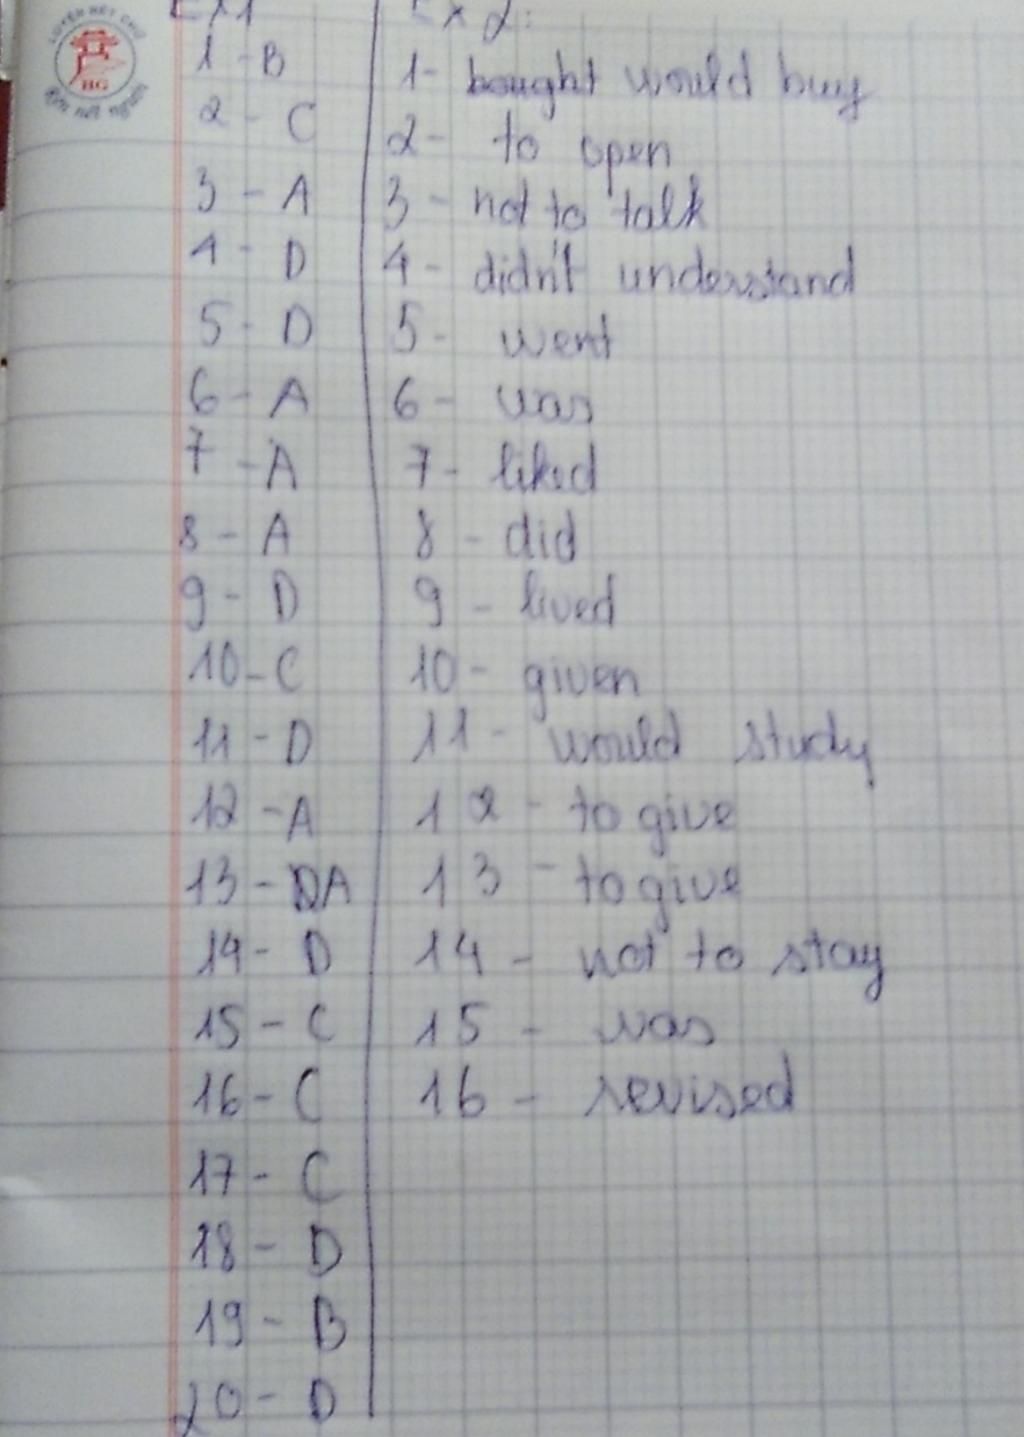 Ex1
1 - B
2 - C
3 - A
4 - D
5 - D
6 - A
7 - A
8 - A
9 - D
10 - C
11 - D
12 - A
13 - DA
14 - D
15 - C
16 - C
17 - C
18 - D
19 - B
20 - D
Ex 2:
1 - bought would buy
2 - to open
3 - not to talk
4 - didn't understand
5 - went
6 - was
7 - liked
8 - did
9 - lived
10 - given
11 - would study
12 - to give
13 - to give
14 - not to stay
15 - was
16 - revised
LUYỆN NÉT CHỮ
BG
RÈN NẾT NGƯỜI